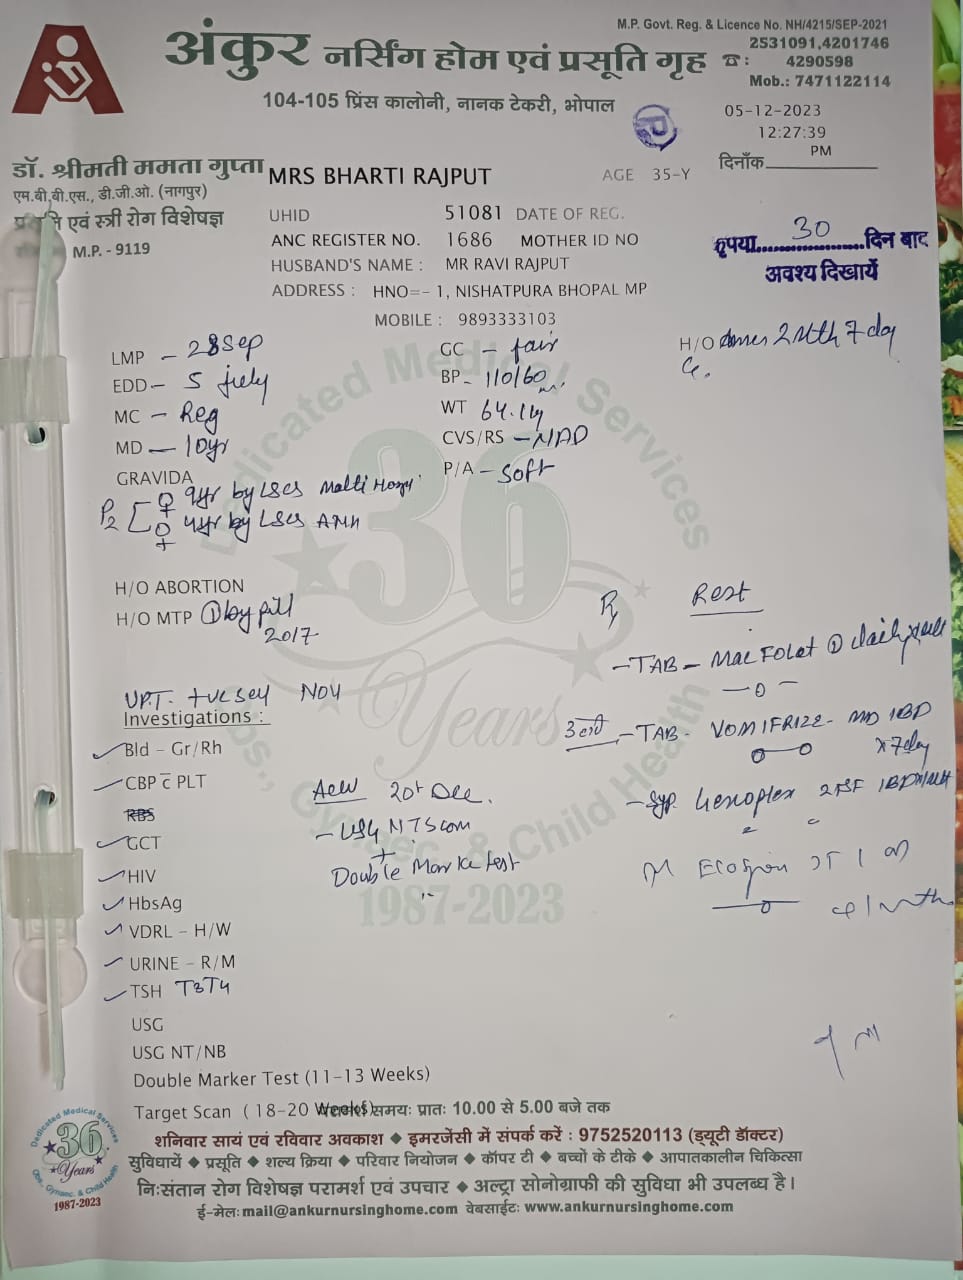 M.P. Govt. Reg. & Licence No. NH/4215/SEP-2021
अंकुर नर्सिंग होम एवं प्रसूति गृह
☎: 2531091,4201746
4290598
Mob.: 7471122114
104-105 प्रिंस कालोनी, नानक टेकरी, भोपाल
05-12-2023
12:27:39
PM
दिनाँक
डॉ. श्रीमती ममता गुप्ता
एम.बी.बी.एस., डी.जी.ओ. (नागपुर)
एवं स्त्री रोग विशेषज्ञ
M.P. - 9119
MRS BHARTI RAJPUT AGE 35-Y
UHID 51081 DATE OF REG.
ANC REGISTER NO. 1686 MOTHER ID NO
HUSBAND'S NAME : MR RAVI RAJPUT
ADDRESS : HNO=- 1, NISHATPURA BHOPAL MP
MOBILE : 9893333103
कृपया 30 दिन बाद
अवश्य दिखायें
LMP - 28 Sep
EDD - 5 july
MC - Reg
MD - 10yr
GRAVIDA
GC - fair
BP - 110/60
WT 64.1
CVS/RS - NAD
P/A - Soft
H/O 2 Mth 7 day
P2 ♀ 9yr by LSCS
♀ 4yr by LSCS
H/O ABORTION
H/O MTP ① by pill
2017
UPT - +ve Nov
Investigations :
Bld - Gr/Rh
CBP c̄ PLT
RBS
GCT
HIV
HbsAg
VDRL - H/W
URINE - R/M
TSH T3T4
USG
USG NT/NB
Double Marker Test (11-13 Weeks)
Target Scan ( 18-20 Weeks)
20th Dec.
- USG NT Scan
+
Double Marker test
Rx Rest
- TAB - MacFolat ① daily
- TAB - VOMIFRIZE - MD 1BD
x 7day
- Syp.
समयः प्रातः 10.00 से 5.00 बजे तक
शनिवार सायं एवं रविवार अवकाश ◆ इमरजेंसी में संपर्क करें : 9752520113 (ड्यूटी डॉक्टर)
सुविधायें ◆ प्रसूति ◆ शल्य क्रिया ◆ परिवार नियोजन ◆ कॉपर टी ◆ बच्चों के टीके ◆ आपातकालीन चिकित्सा
निःसंतान रोग विशेषज्ञ परामर्श एवं उपचार ◆ अल्ट्रा सोनोग्राफी की सुविधा भी उपलब्ध है।
ई-मेलः mail@ankurnursinghome.com वेबसाईटः www.ankurnursinghome.com
Dedicated Medical Services
36
Years
Obs., Gynaec. & Child Health
1987-2023